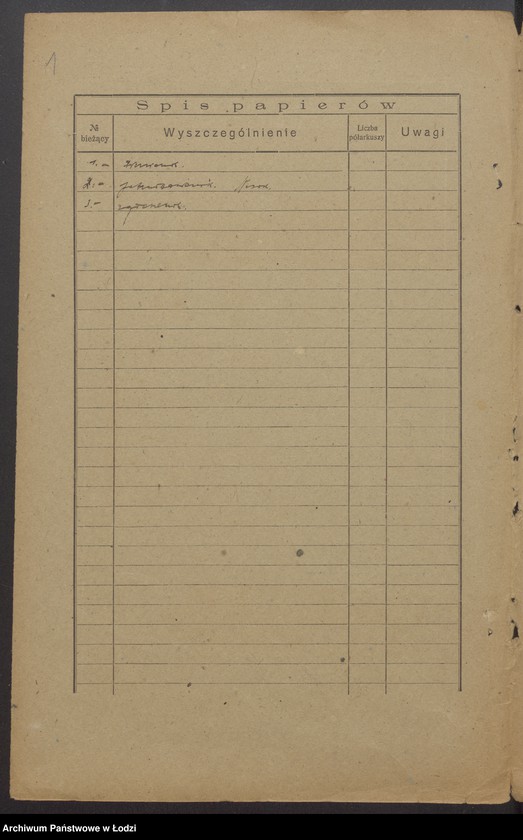 1
Spis papierów
№ bieżący
Wyszczególnienie
Liczba półarkuszy
Uwagi
1.-
2.-
3.-
Archiwum Państwowe w Łodzi